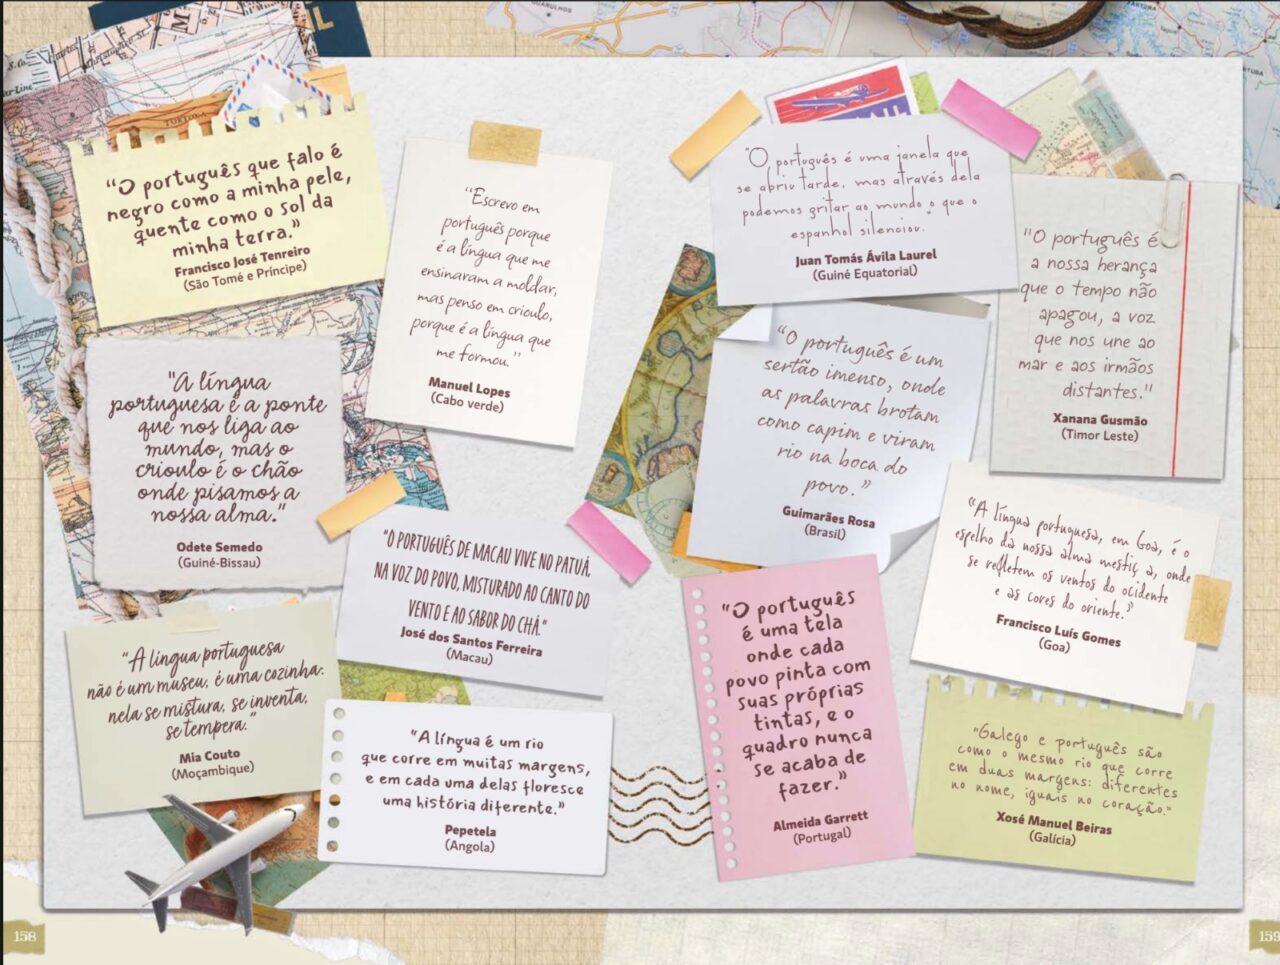 "O português que falo é
negro como a minha pele,
quente como o sol da
minha terra."
Francisco José Tenreiro
(São Tomé e Príncipe)
"Escrevo em
português porque
é a língua que me
ensinaram a moldar,
mas penso em crioulo,
porque é a língua que
me formou."
Manuel Lopes
(Cabo verde)
"A língua
portuguesa é a ponte
que nos liga ao
mundo, mas o
crioulo é o chão
onde pisamos a
nossa alma."
Odete Semedo
(Guiné-Bissau)
"O PORTUGUÊS DE MACAU VIVE NO PATUÁ,
NA VOZ DO POVO, MISTURADO AO CANTO DO
VENTO E AO SABOR DO CHÁ."
José dos Santos Ferreira
(Macau)
"A língua portuguesa
não é um museu, é uma cozinha:
nela se mistura, se inventa,
se tempera."
Mia Couto
(Moçambique)
"A língua é um rio
que corre em muitas margens,
e em cada uma delas floresce
uma história diferente."
Pepetela
(Angola)
158
"O português é uma janela que
se abriu tarde, mas através dela
podemos gritar ao mundo o que o
espanhol silenciou."
Juan Tomás Ávila Laurel
(Guiné Equatorial)
"O português é
a nossa herança
que o tempo não
apagou, a voz
que nos une ao
mar e aos irmãos
distantes."
Xanana Gusmão
(Timor Leste)
"O português é um
sertão imenso, onde
as palavras brotam
como capim e viram
rio na boca do
povo."
Guimarães Rosa
(Brasil)
"A língua portuguesa, em Goa, é o
espelho da nossa alma mestiç a, onde
se refletem os ventos do ocidente
e as cores do oriente."
Francisco Luís Gomes
(Goa)
"O português
é uma tela
onde cada
povo pinta com
suas próprias
tintas, e o
quadro nunca
se acaba de
fazer."
Almeida Garrett
(Portugal)
"Galego e português são
como o mesmo rio que corre
em duas margens: diferentes
no nome, iguais no coração."
Xosé Manuel Beiras
(Galícia)
159